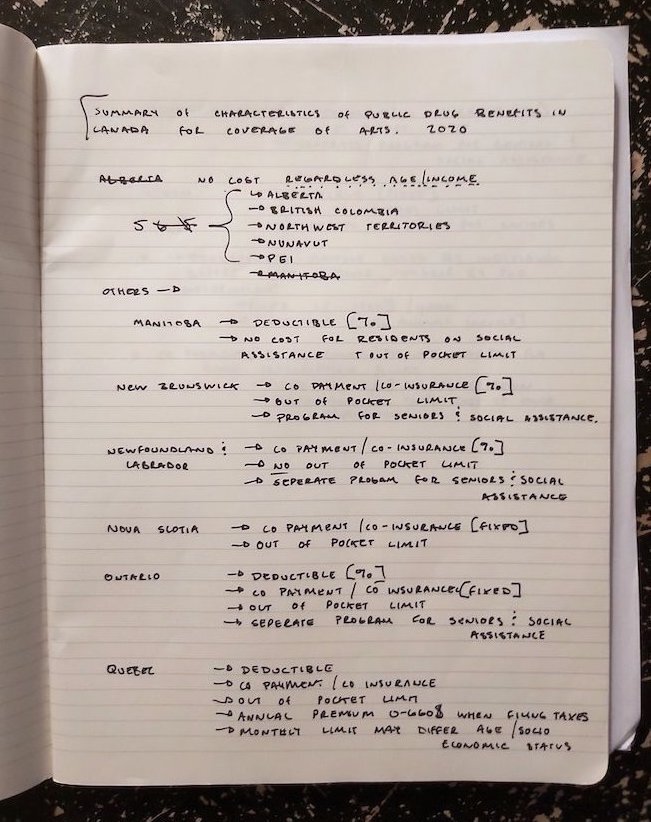 SUMMARY OF CHARACTERISTICS OF PUBLIC DRUG BENEFITS IN
CANADA FOR COVERAGE OF ARTS. 2020
ALBERTA NO COST REGARDLESS AGE/INCOME
→ ALBERTA
→ BRITISH COLOMBIA
5 6 5 → NORTHWEST TERRITORIES
→ NUNAVUT
→ PEI
→ MANITOBA
OTHERS →
MANITOBA → DEDUCTIBLE [%]
→ NO COST FOR RESIDENTS ON SOCIAL
ASSISTANCE + OUT OF POCKET LIMIT
NEW BRUNSWICK → CO PAYMENT/CO-INSURANCE [%]
→ OUT OF POCKET LIMIT
→ PROGRAM FOR SENIORS & SOCIAL ASSISTANCE.
NEWFOUNDLAND & → CO PAYMENT/CO-INSURANCE [%]
LABRADOR → NO OUT OF POCKET LIMIT
→ SEPERATE PROGAM FOR SENIORS & SOCIAL
ASSISTANCE
NOVA SCOTIA → CO PAYMENT/CO-INSURANCE [FIXED]
→ OUT OF POCKET LIMIT
ONTARIO → DEDUCTIBLE [%]
→ CO PAYMENT/CO INSURANCE [FIXED]
→ OUT OF POCKET LIMIT
→ SEPERATE PROGRAM FOR SENIORS & SOCIAL
ASSISTANCE
QUEBEC → DEDUCTIBLE
→ CO PAYMENT/CO INSURANCE
→ OUT OF POCKET LIMIT
→ ANNUAL PREMIUM 0-660$ WHEN FILING TAXES
→ MONTHLY LIMIT MAY DIFFER AGE/SOCIO
ECONOMIC STATUS